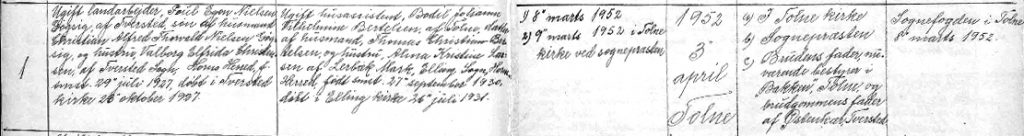 1
Ugift landarbejder, Poul Egon Nielsen
Engsig, af Tversted, søn af husmand
Christian Alfred Thorvald Nielsen Eng-
sig, og hustru, Valborg Elfrida Christen-
sen, af Tversted Sogn, Horns Herred, f.
smst. 29' juli 1927, døbt i Tversted
kirke 23' oktober 1927.
Ugift husassistent, Bodil Johanne
Vilhelmine Bertelsen, af Tolne, datter
af husmand, Thomas Christian Ber-
telsen, og hustru, Anna Kristine Lar-
sen, af Lerbæk Mark, Elling Sogn, Horns
Herred, født smst. 27' september 1930,
døbt i Elling kirke 26' juli 1931.
1) 8' marts 1952
2) 9' marts 1952 i Tolne
kirke ved sognepræsten
1952
3'
april
Tolne
a) I Tolne kirke
b) Sognepræsten
c) Brudens fader, nu-
værende bestyrer i
Bakken, Tolne, og
brudgommens fader
af Tversted
Sognefogden i Tolne
8' marts 1952.